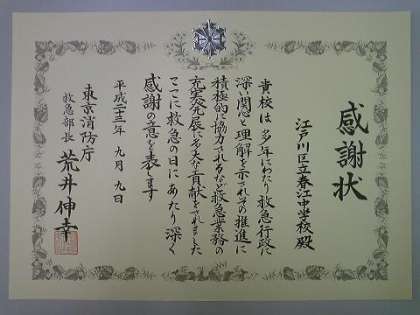 感謝状
江戸川区立春江中学校殿
貴校は多年にわたり救急行政に
深い関心と理解を示されその推進に
積極的に協力されるなど救急業務の
充実発展に多大な貢献をされました
ここに救急の日にあたり深く
感謝の意を表します
平成二十三年九月九日
東京消防庁
救急部長 荒井伸幸